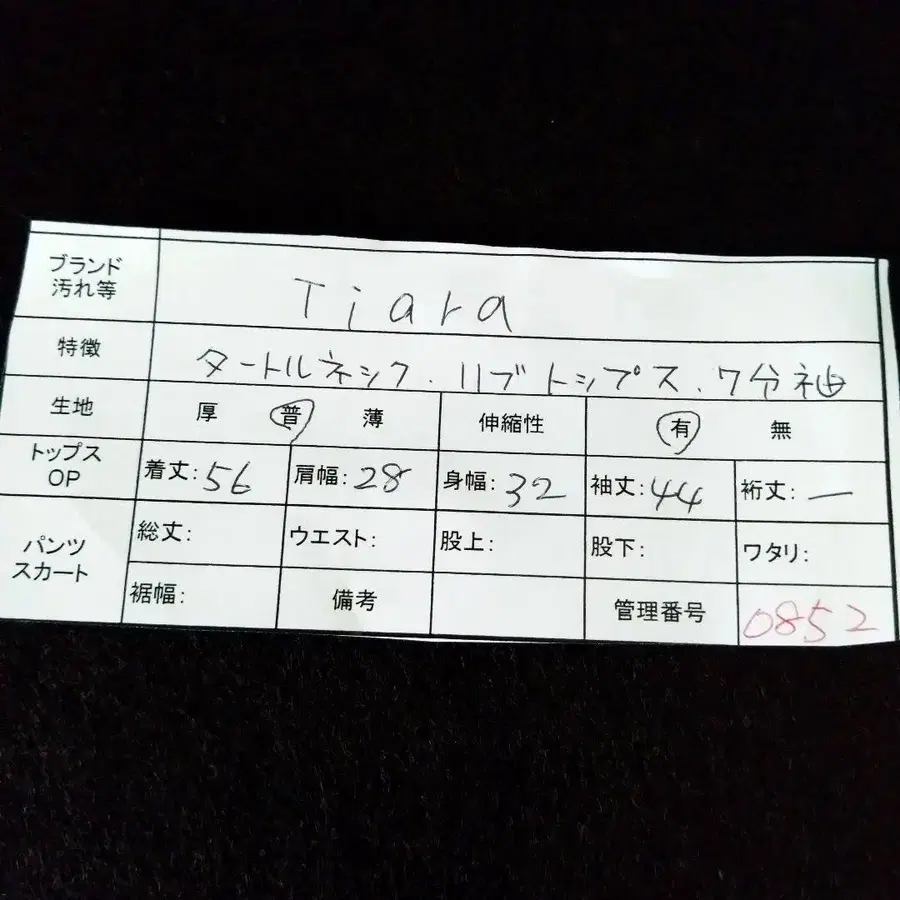 ブランド
汚れ等
Tiara
特徴
タートルネック.リブトップス.7分袖
生地 厚 普 薄 伸縮性 有 無
トップス
OP
着丈:56 肩幅:28 身幅:32 袖丈:44 裄丈:―
パンツ
スカート
総丈: ウエスト: 股上: 股下: ワタリ:
裾幅: 備考 管理番号 0852